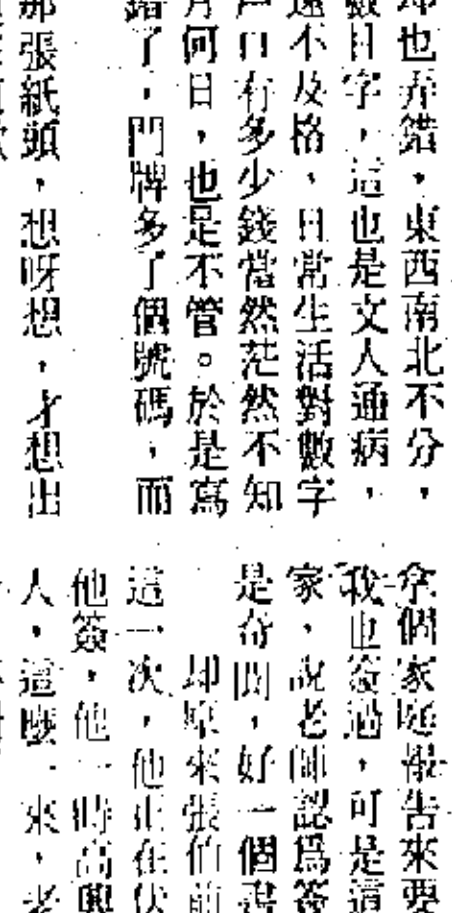 却也弄錯，東西南北不分，
數目字，這也是文人通病，
遠不及格、日常生活對數字
戶口有多少錢當然茫然不知
月何日，也是不管。於是寫
錯了，門牌多了個號碼，而
那張紙頭，想呀想，才想出
拿個家庭報告來要
我也簽過，可是這
家，說老師認爲簽
是奇聞，好一個尋
却原來張伯前
這一次，他正在伏
他簽，他一時高興
人，這麼一來，老